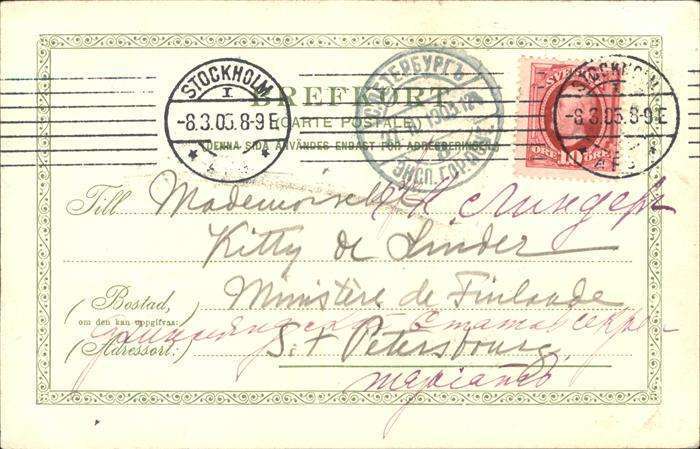 STOCKHOLM
1
-8.3.05. 8-9 E
BREFKORT
CARTE POSTALE
(DENNA SIDA ANVÄNDES ENDAST FÖR ADRESSERINGEN)
ПЕТЕРБУРГЪ
ЭКСП. ГОР.
STOCKHOLM
1
-8.3.05. 8-9 E
ÖRE 10 ÖRE
Till Mademoiselle
К. Линдеръ
Kitty de Linder
Ministère de Finlande
(Bostad,
om den kan uppgifvas:)
Финляндскій Статсъ Секре-
(Adressort:) S:t Petersbourg
таріатъ